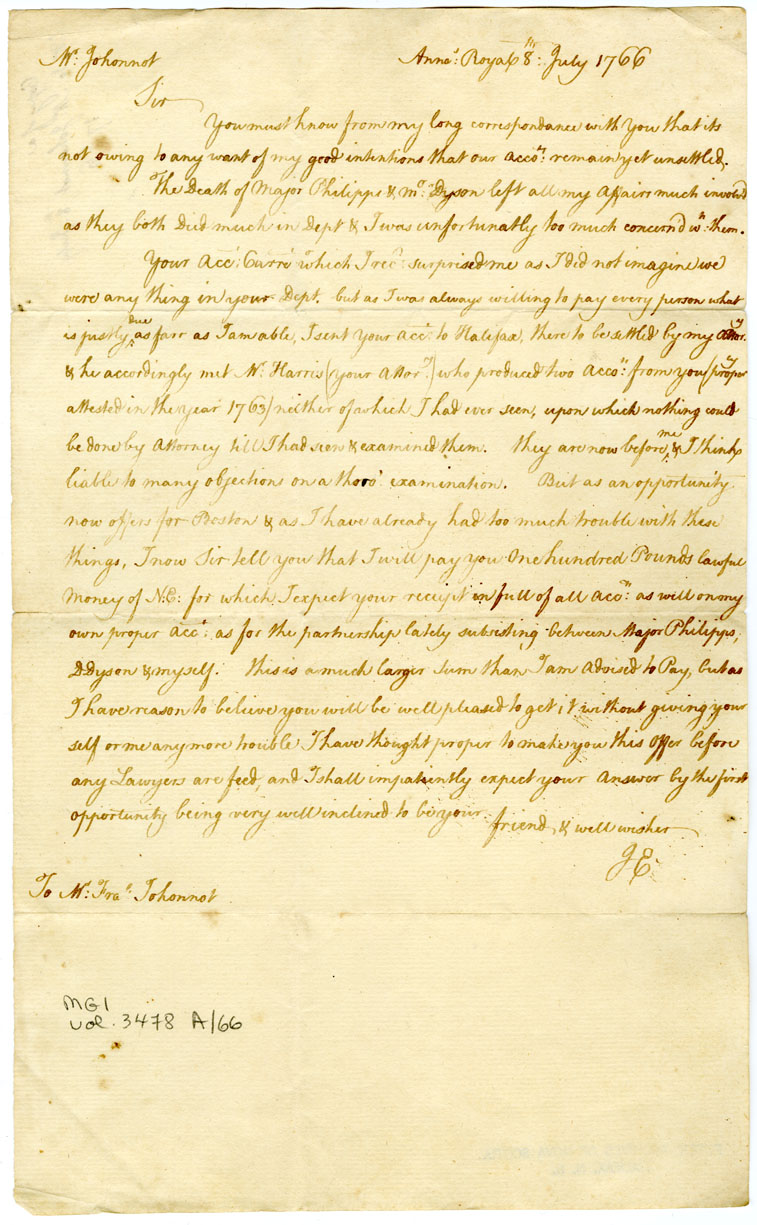 Mr. Johonnot
Annas. Royal 8th. July 1766
Sir
You must know from my long correspondance with You that its
not owing to any want of my good intentions that our Accots. remain yet unsettled.
The Death of Major Philipps & Mr. Dyson left all my Affairs much involv'd
as they both Died much in Dept & I was unfortunatly too much concern'd wth. them.
Your Acct. Currt. which I recd. surprised me as I did not imagine we
were any thing in your Dept. but as I was always willing to pay every person what
is justly due as farr as I am able, I sent your Acct. to Halifax, there to be settled by my Attory.
& he accordingly met Mr. Harris (your Attory.) who produced two Accots. from you (propery
attested in the year 1763) neither of which I had ever seen, upon which nothing could
be done by Attorney till I had seen & examined them. they are now before me, & I think
liable to many objections on a thoro' examination. But as an opportunity
now offers for Boston & as I have already had too much trouble with these
things, I now Sir tell you that I will pay you One hundred Pounds lawful
Money of N.E: for which I expect your receipt in full of all Accots. as will on my
own proper Acct. as for the partnership lately subsisting between Major Philipps,
D Dyson & myself. this is a much larger Sum than I am advised to Pay, but as
I have reason to believe you will be well pleased to get it without giving your
self or me any more trouble I have thought proper to make you this Offer before
any Lawyers are feed, and I shall impatiently expect your Answer by the first
opportunity being very well inclined to be your
friend, & well wisher
JE
To Mr. Fras. Johonnot
MG1
vol. 3478 A/66